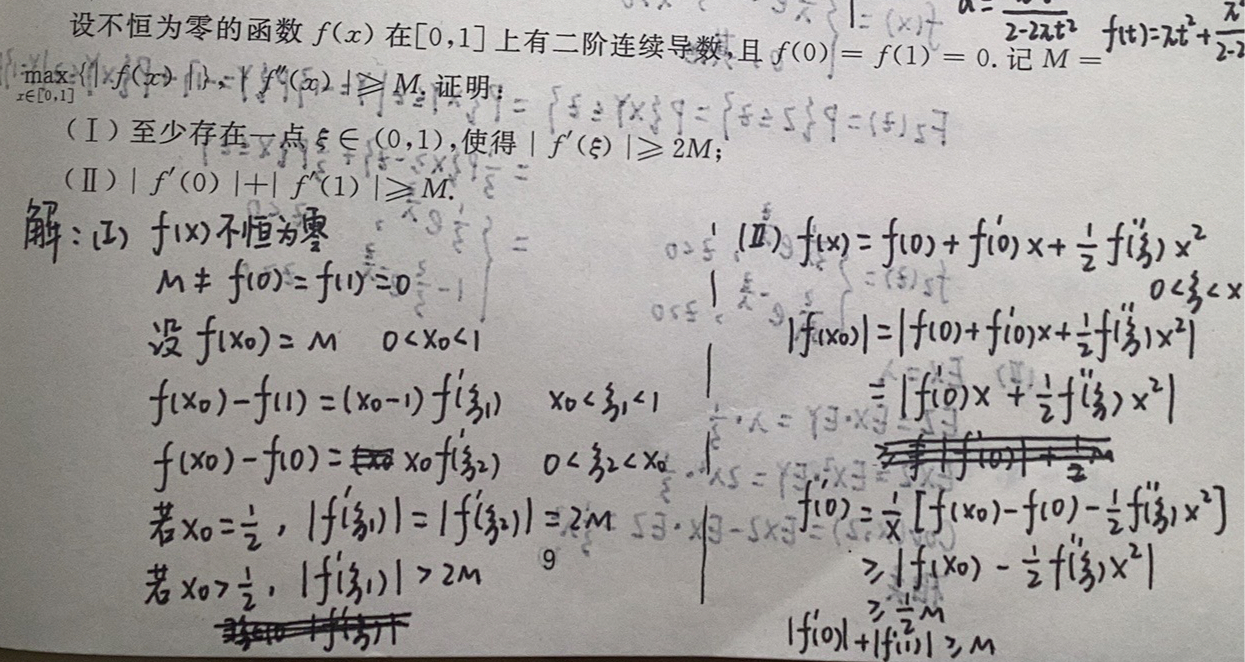 设不恒为零的函数 f(x) 在[0,1] 上有二阶连续导数,且 f(0) = f(1) = 0. 记 M =
max{| f(x) |}, | f″(x) |⩾ M. 证明:
x∈[0,1]
(Ⅰ) 至少存在一点 ξ ∈ (0,1),使得 | f′(ξ) |⩾ 2M;
(Ⅱ) | f′(0) |+| f′(1) |⩾ M.
解: (I) f(x) 不恒为零
M ≠ f(0) = f(1) = 0
设 f(x₀) = M 0<x₀<1
f(x₀) - f(1) = (x₀-1) f'(ξ₁) x₀<ξ₁<1
f(x₀) - f(0) = x₀ f'(ξ₂) 0<ξ₂<x₀
若 x₀ = 1/2, |f'(ξ₁)| = |f'(ξ₂)| = 2M
若 x₀ > 1/2, |f'(ξ₁)| > 2M
9
(II) f(x) = f(0) + f'(0) x + 1/2 f''(ξ) x²
0<ξ<x
|f(x₀)| = |f(0) + f'(0)x + 1/2 f''(ξ) x²|
= |f'(0)x + 1/2 f''(ξ) x²|
f'(0) = 1/x [f(x₀) - f(0) - 1/2 f''(ξ) x²]
⩾ |f(x₀) - 1/2 f''(ξ) x²|
⩾ 1/2 M
|f'(0)| + |f'(1)| ⩾ M